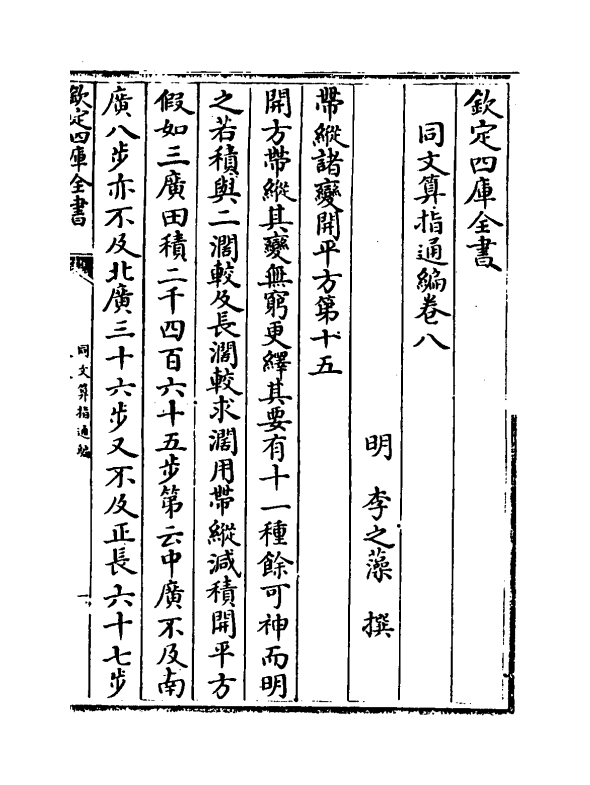 欽定四庫全書
同文算指通編卷八
明 李之藻 撰
帶縱諸變開平方第十五
開方帶縱其變無窮更繹其要有十一種餘可神而明
之若積與二濶較及長濶較求濶用帶縱減積開平方
假如三廣田積二千四百六十五步第云中廣不及南
廣八步亦不及北廣三十六步又不及正長六十七步
欽定四庫全書
同文算指通編
一